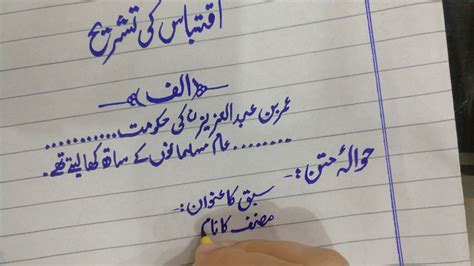 اقتباس کی تشریح
(الف)
عمر بن عبد العزیزؒ کی حکومت...........
..........عام مسلمانوں کے ساتھ کھا لیتے تھے۔
حوالۂ متن:-
سبق کا عنوان:-
مصنف کا نام